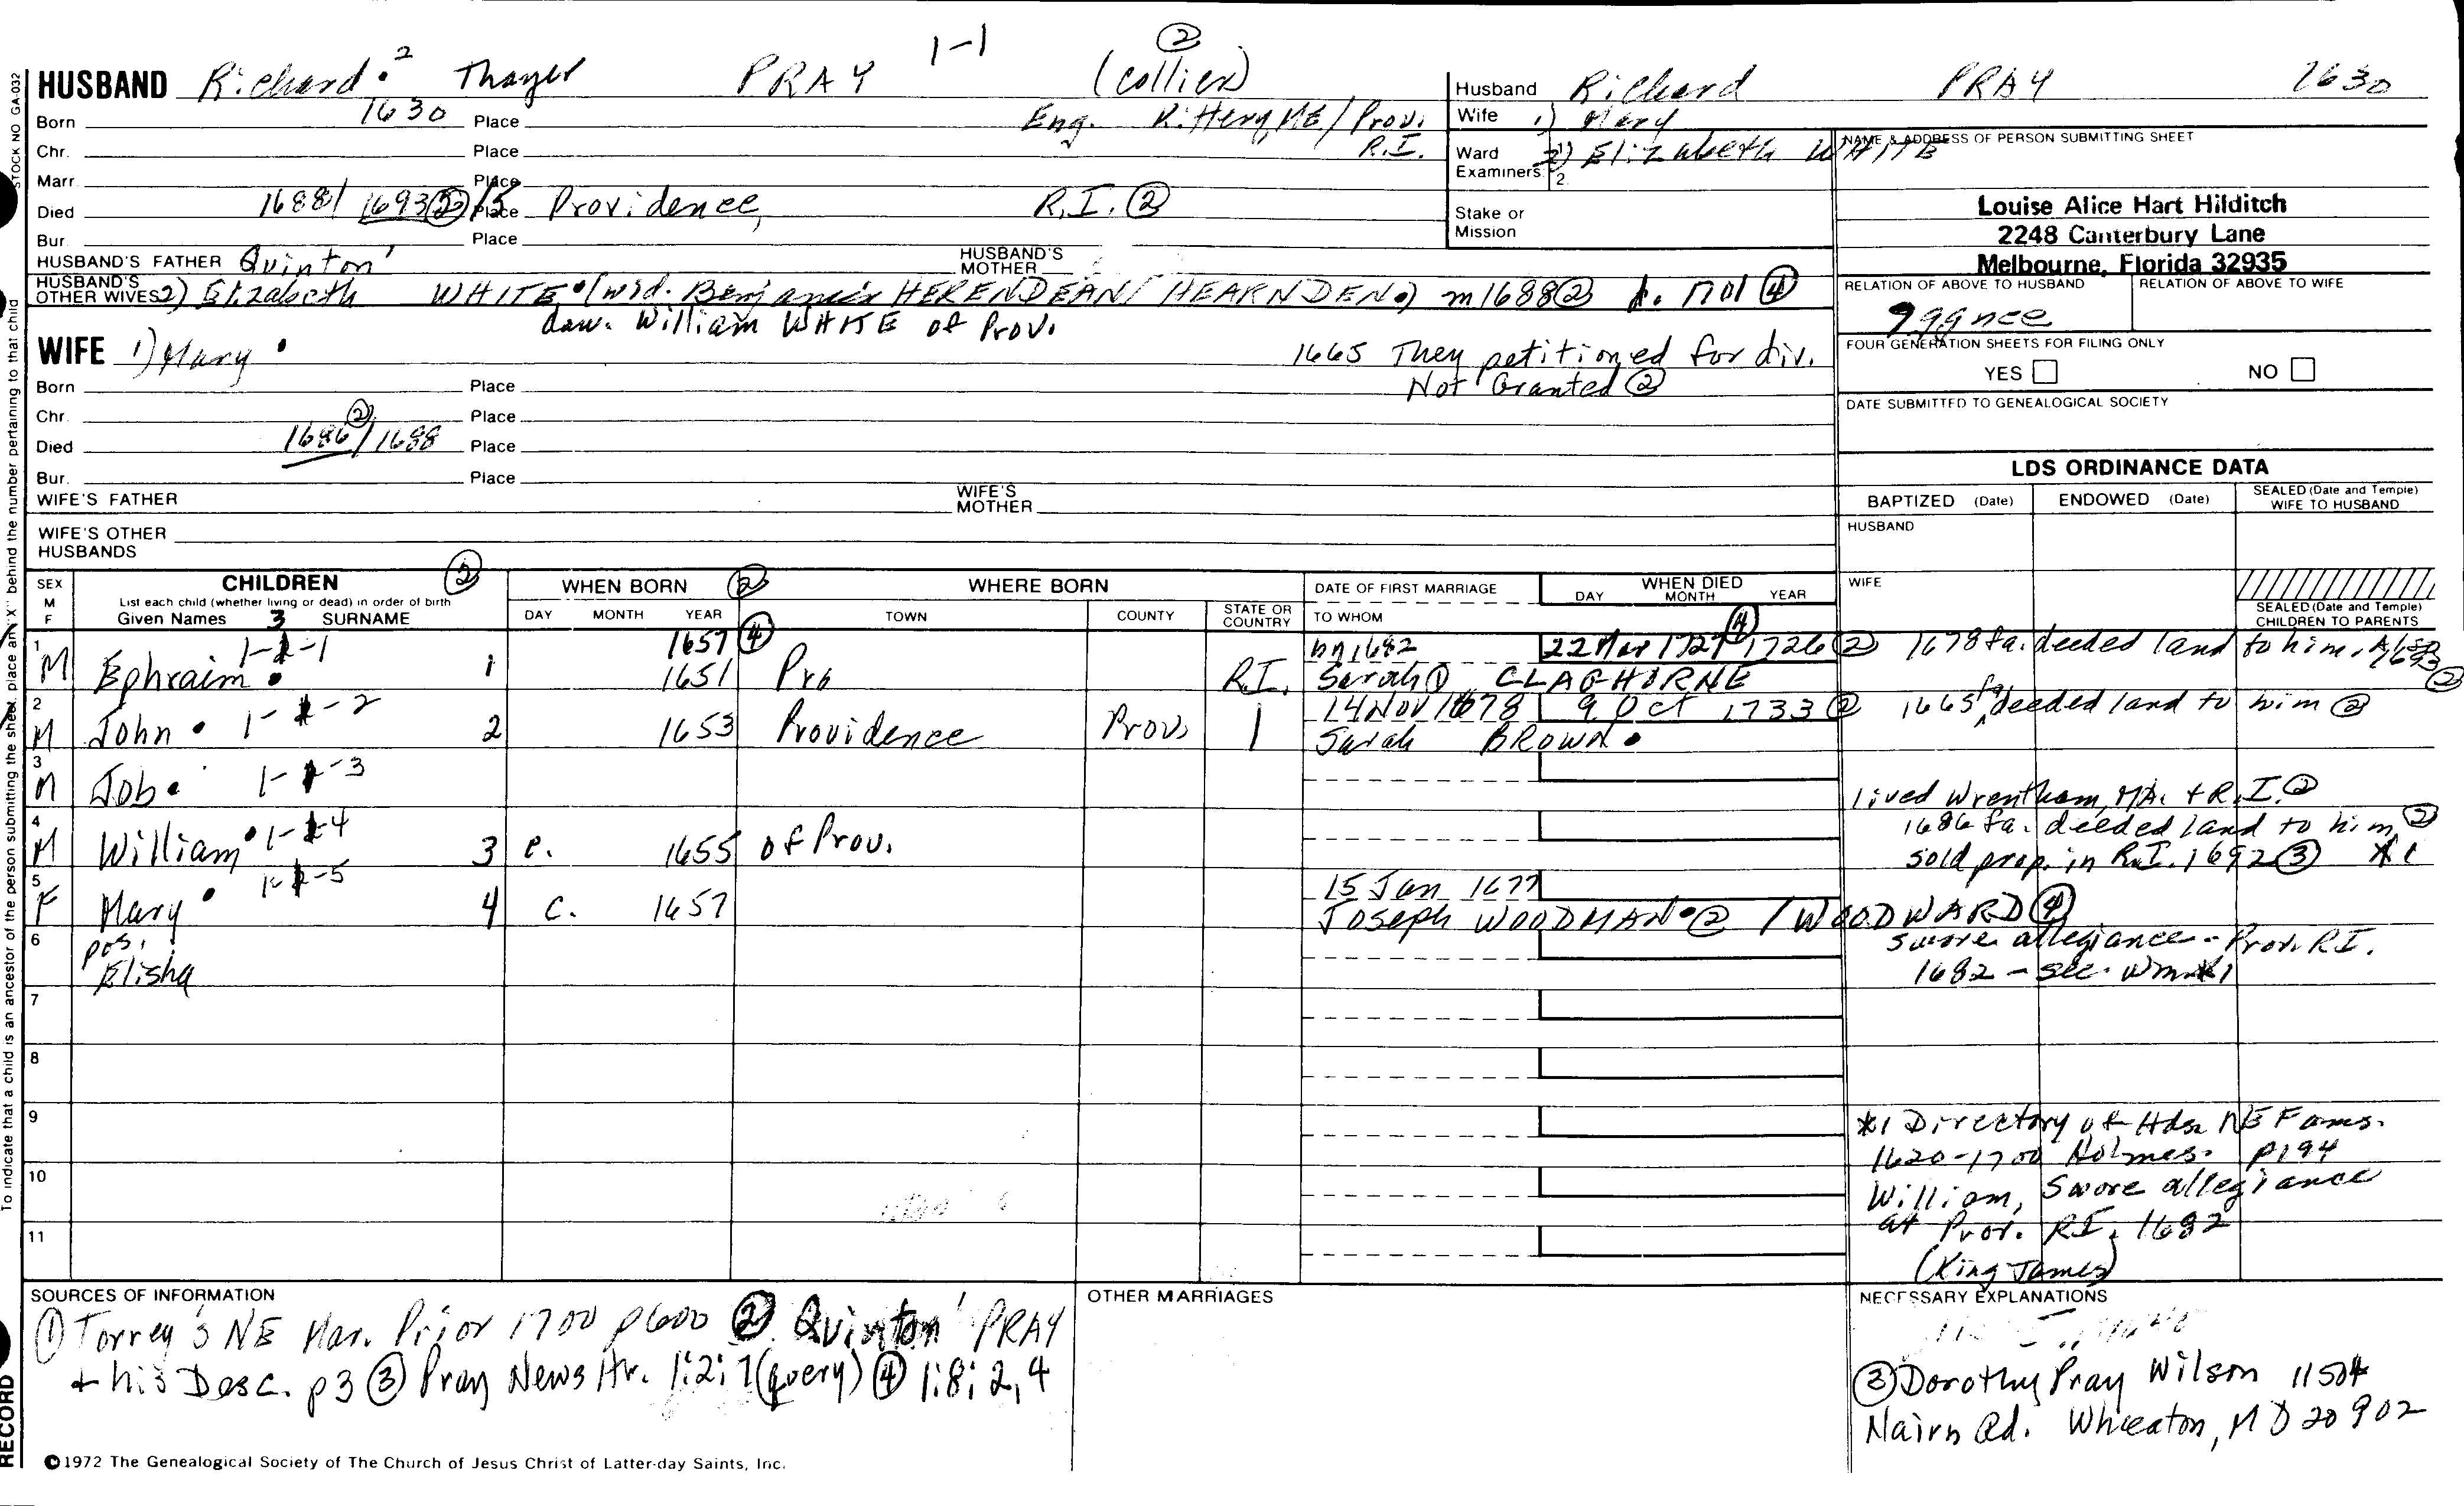 1-1 ②
HUSBAND Richard ² Thayer PRAY (Collier)
Born 1630 Place Eng. Kittery ME / Prov.
Chr. Place R.I.
Marr. Place
Died 1688/ 1693 ② /5 Place Providence, R.I. ②
Bur. Place
HUSBAND'S FATHER Quinton' HUSBAND'S MOTHER
HUSBAND'S OTHER WIVES 2) Elizabeth WHITE (wid. Benjamin HERENDEAN/ HEARNDEN) m1688 ② 1701 ④
daw. William WHITE of Prov.
WIFE 1) Mary
1665 They petitioned for div.
Not Granted ②
Born Place
Chr. Place
Died 1686 ② / 1688 Place
Bur. Place
WIFE'S FATHER WIFE'S MOTHER
WIFE'S OTHER
HUSBANDS
Husband Richard PRAY 1630
Wife 1) Mary
Ward 1. 2) Elizabeth WHITE
Examiners: 2.
Stake or
Mission
NAME & ADDRESS OF PERSON SUBMITTING SHEET
Louise Alice Hart Hilditch
2248 Canterbury Lane
Melbourne, Florida 32935
RELATION OF ABOVE TO HUSBAND RELATION OF ABOVE TO WIFE
9ggnce
FOUR GENERATION SHEETS FOR FILING ONLY
YES NO
DATE SUBMITTED TO GENEALOGICAL SOCIETY
LDS ORDINANCE DATA
BAPTIZED (Date) ENDOWED (Date) SEALED (Date and Temple) WIFE TO HUSBAND
HUSBAND
WIFE
SEALED (Date and Temple)
CHILDREN TO PARENTS
SEX
M
F
CHILDREN ②
List each child (whether living or dead) in order of birth
Given Names 3 SURNAME
WHEN BORN ②
DAY MONTH YEAR
WHERE BORN
TOWN COUNTY STATE OR COUNTRY
DATE OF FIRST MARRIAGE
TO WHOM
WHEN DIED
DAY MONTH YEAR
1 1-1-1 1657 ④ by 1682 22 Mar 1727 ④ 1726 ② 1678 fa. deeded land to him.
M Ephraim 1 1651 Pro R.I. Sarah ① CLAGHORNE ②
2 14 Nov 1678 9 Oct 1733 ② 1665 fa deeded land to him ②
M John 1-1-2 2 1653 Providence Prov. Sarah BROWN
3
M Job 1-1-3
lived Wrentham, MA. + R.I. ②
4 1686 fa. deeded land to him ②
M William 1-1-4 3 c. 1655 of Prov. sold prop. in R.I. 1692 ③ *1
5 1-1-5 15 Jan 1677
F Mary 4 c. 1657 Joseph WOODMAN ② / WOODWARD ④
6 pos. swore allegiance - Prov. R.I.
Elisha 1682 - see. Wm *1
7
8
9
10
11
*1 Directory of Hds. NE Fams.
1620-1700 Holmes. p194
William, Swore allegiance
at Prov. RI. 1682
(King James)
SOURCES OF INFORMATION
① Torrey's NE Mar. Prior 1700 p600 ② Quinton' PRAY
+ his Desc. p3 ③ Pray News Hr. 1:2:7 (query) ④ 1:8:2,4
OTHER MARRIAGES
NECESSARY EXPLANATIONS
③ Dorothy Pray Wilson 11504
Nairn Rd. Wheaton, MD 20902
©1972 The Genealogical Society of The Church of Jesus Christ of Latter-day Saints, Inc.
STOCK NO GA-032
To indicate that a child is an ancestor of the person submitting the sheet, place an "X" behind the number pertaining to that child
RECORD